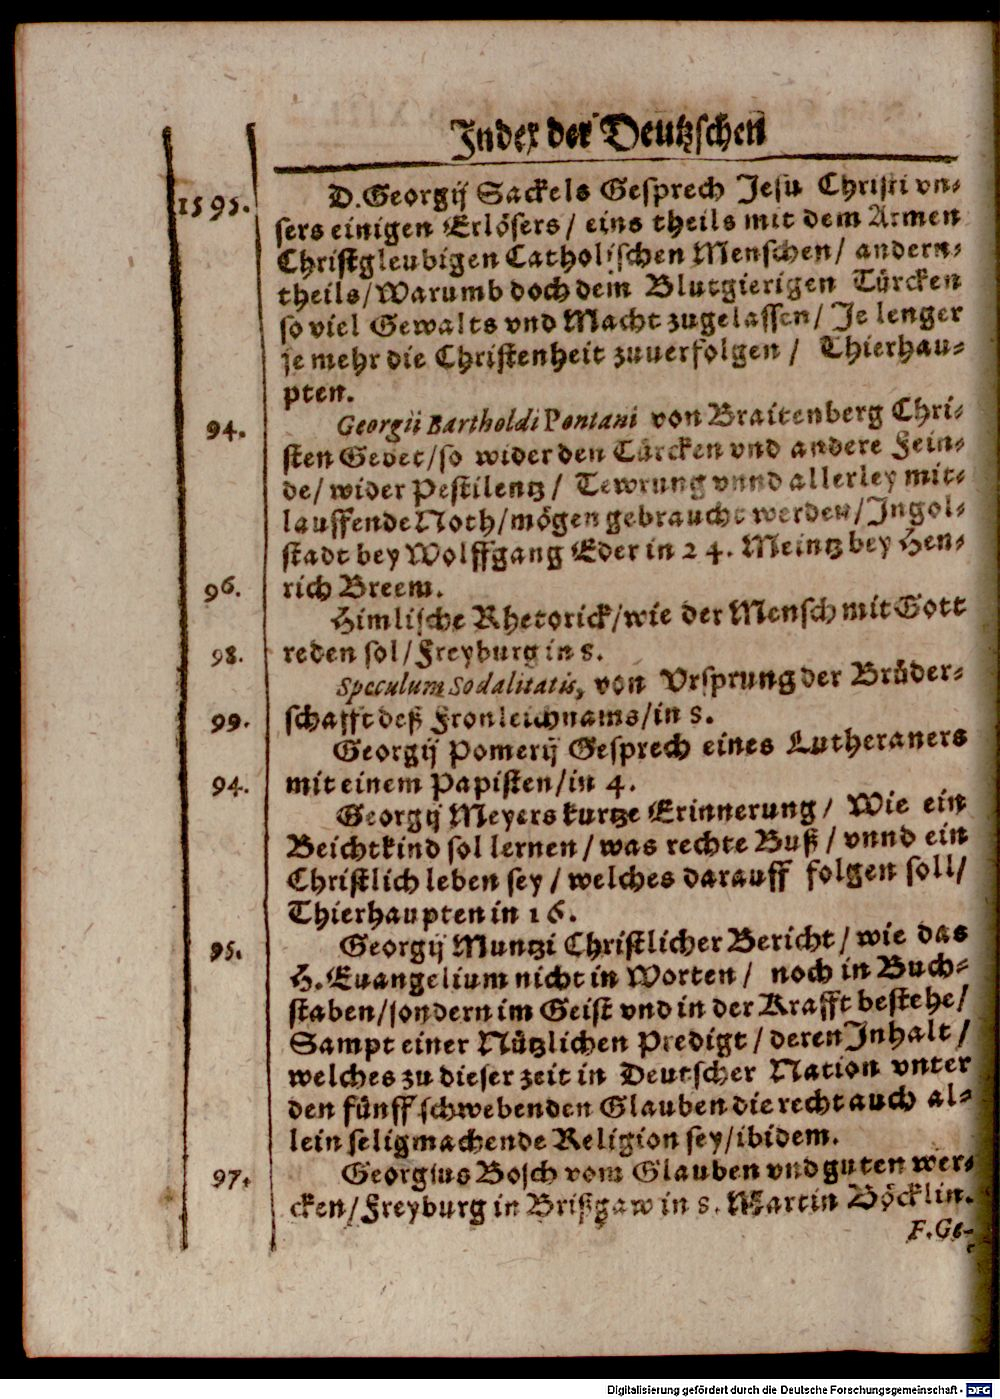 Index der Deutzschen
1595. D. Georgij Sackels Gesprech Jesu Christi vn-
sers einigen Erlösers / eins theils mit dem Armen
Christgleubigen Catholischen Menschen / andern-
theils / Warumb doch dem Blutgierigen Türcken
so viel Gewalts vnd Macht zugelassen / Je lenger
je mehr die Christenheit zuuerfolgen / Thierhau-
pten.
94. Georgii Bartholdi Pontani von Braitenberg Chri-
sten Gebet / so wider den Türcken vnd andere Fein-
de / wider Pestilentz / Tewrung vnnd allerley mit-
lauffende Noth / mögen gebraucht werden / Ingol-
stadt bey Wolffgang Eder in 24. Meintz bey Hen-
96. rich Breem.
Himlische Rhetorick / wie der Mensch mit Gott
98. reden sol / Freyburg in 8.
Speculum Sodalitatis, von Vrsprung der Brüder-
99. schafft deß Fronleichnams / in 8.
Georgij Pomerij Gesprech eines Lutheraners
94. mit einem Papisten / in 4.
Georgij Meyers kurtze Erinnerung / Wie ein
Beichtkind sol lernen / was rechte Buß / vnnd ein
Christlich leben sey / welches darauff folgen soll /
Thierhaupten in 16.
95. Georgij Muntzi Christlicher Bericht / wie das
H. Euangelium nicht in Worten / noch in Buch-
staben / sondern im Geist vnd in der Krafft bestehe /
Sampt einer Nützlichen Predigt / deren Inhalt /
welches zu dieser zeit in Deutscher Nation vnter
den fünff schwebenden Glauben die recht auch al-
lein seligmachende Religion sey / ibidem.
97. Georgius Bosch vom Glauben vnd guten wer-
cken / Freyburg in Brißgaw in 8. Martin Böcklin.
F. Ge-
Digitalisierung gefördert durch die Deutsche Forschungsgemeinschaft - DFG